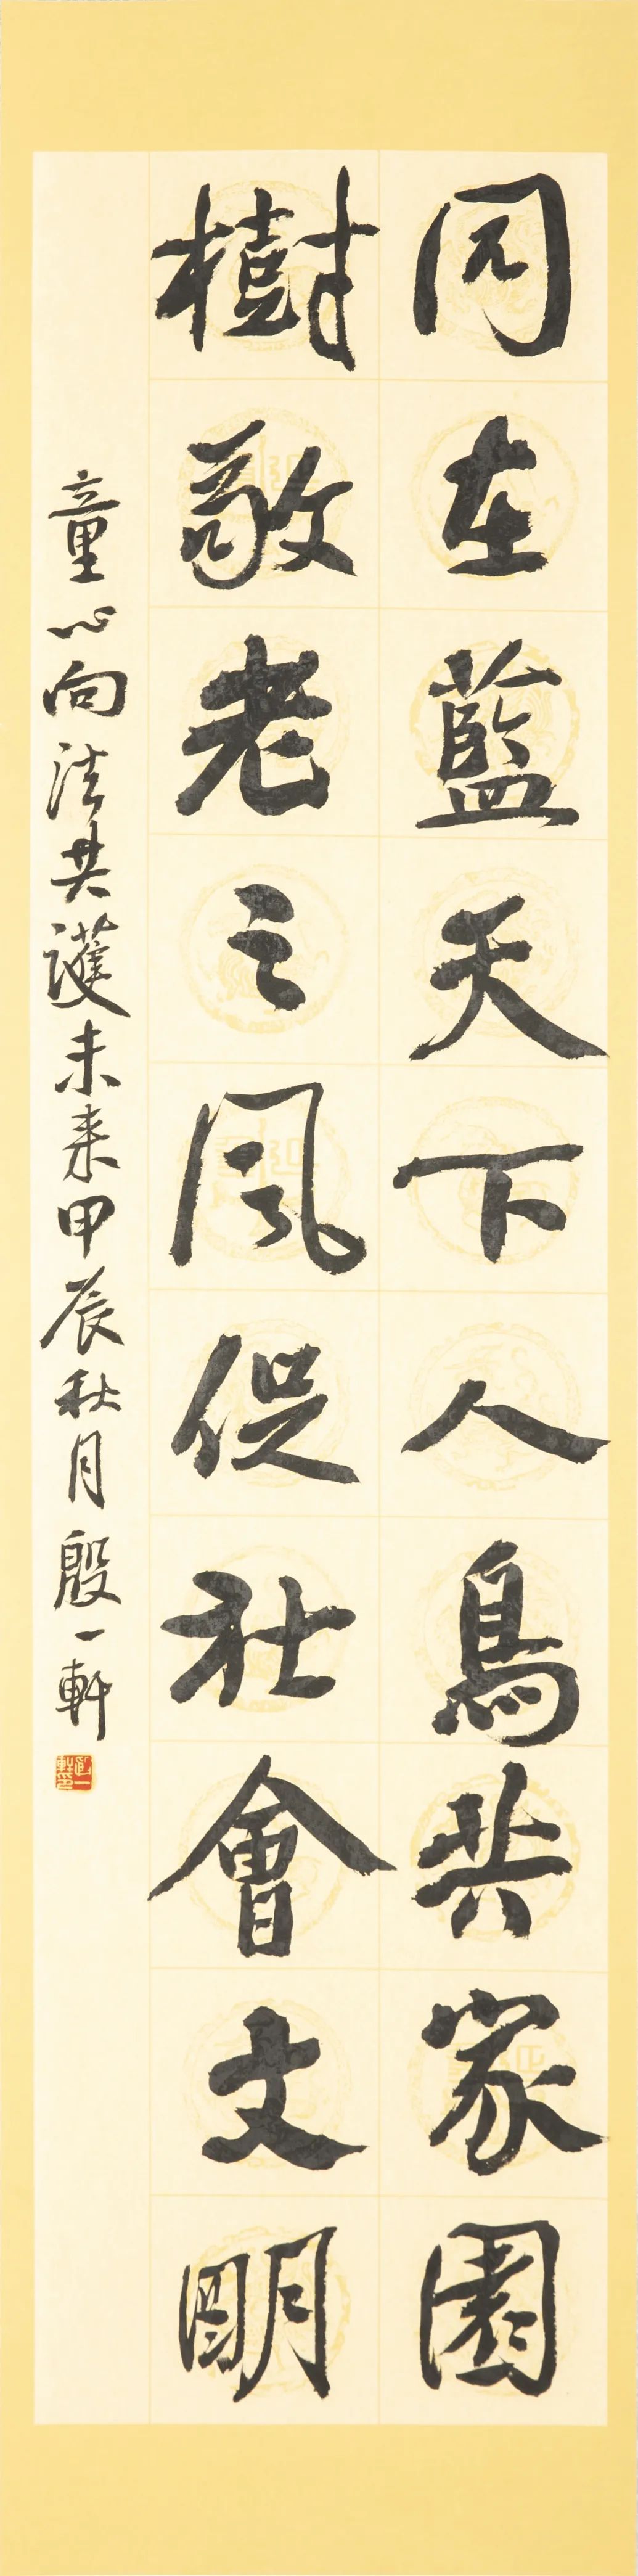 同在藍天下人鳥共家園
樹敬老之風促社會文明
童心向法共護未来甲辰秋月殷一軒